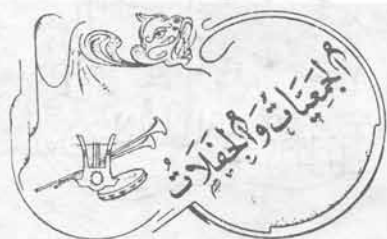 الجمعيَّات وَالحفَلاتُ